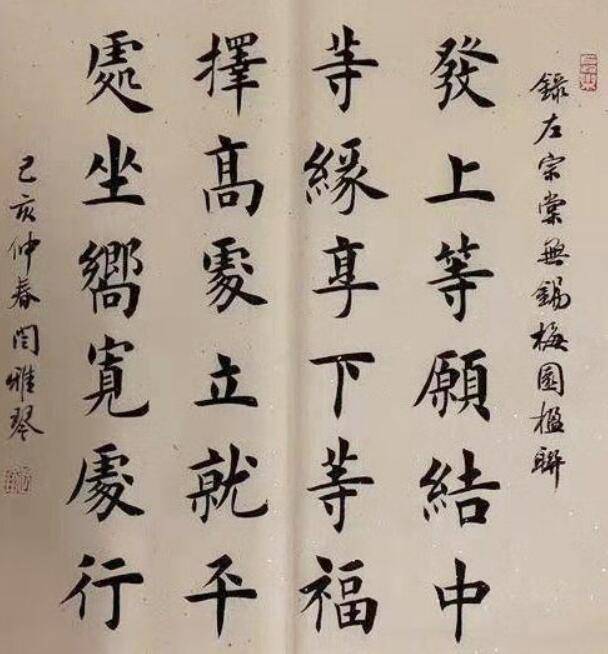 錄左宗棠無錫梅園楹聯
發上等願結中
等緣享下等福
擇高處立就平
處坐嚮寬處行
己亥仲春闫雅琴